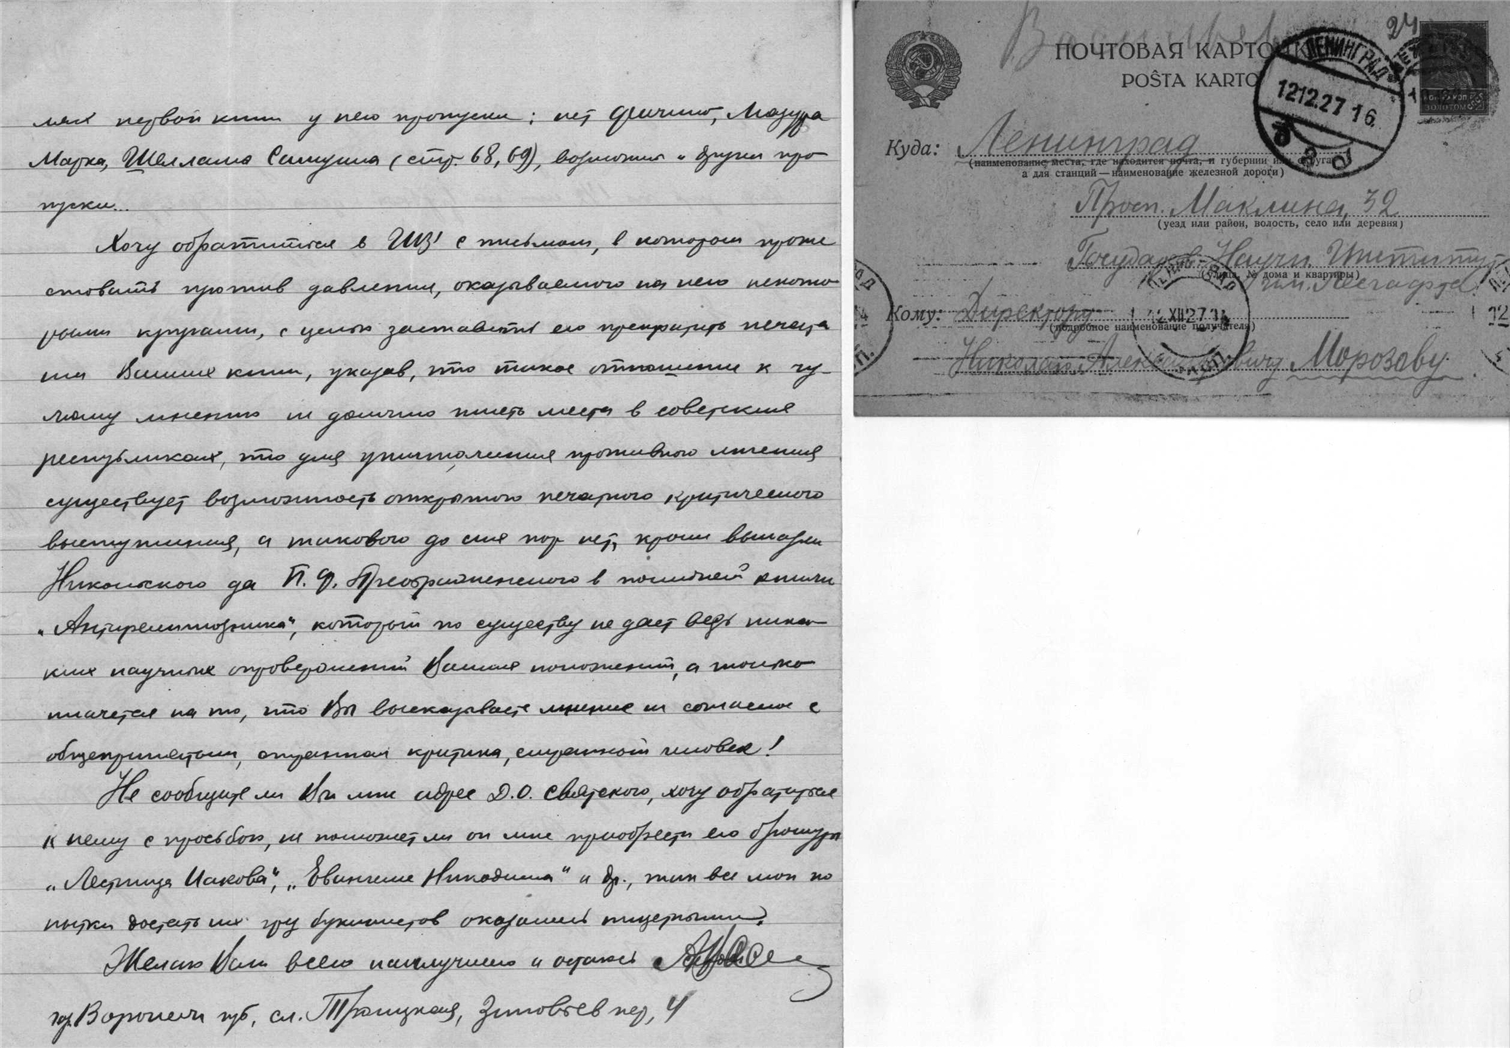 лях первой книги у него пропуски; нет Фичино, Мазура
Марка, Шеллама Самуила (стр. 68, 69), возможны и другие про-
пуски...
Хочу обратиться в ГИЗ с письмом, в котором проте
стовать против давления, оказываемого на него некото-
рыми кругами, с целью заставить его прекратить печата
ние Ваших книг, указав, что такое отношение к чу-
жому мнению не должно иметь места в советских
республиках, что для уничтожения противного мнения
существует возможность открытого печатного критического
выступления, а такового до сих пор нет, кроме
Никольского да П. Ф. Преображенского в последней книги
„Антирелигиозника“, который по существу не дает ведь ника-
ких научных опровержений Ваших положений, а только
плачется на то, что Вы высказываете мнение не согласное с
общепринятым, странная критика, странный человек!
Не сообщите ли Вы мне адрес Д.О. Святского, хочу обратиться
к нему с просьбою, не поможет ли он мне приобрести его брошюры
„Лестница Иакова“, „Евангелие Никодима“ и др., так все мои по
пытки достать их у букинистов оказались тщетными.
Желаю Вам всего наилучшего и остаюсь
гор. Воронеж губ, сл. Троицкая, Зиновьев пер, 4
24
ПОЧТОВАЯ КАРТОЧКА
POŜTA KARTO
ЛЕНИНГРАД
12.12.27 16.
Куда: Ленинград
(наименование места, где находится почта, и губернии или округа
а для станций — наименование железной дороги)
Просп. Маклина, 32
(уезд или район, волость, село или деревня)
Государ. Научн. Институт
(улица, № дома и квартиры)
им. Лесгафта
Кому: Директору
(подробное наименование получателя)
Николаю Александровичу Морозову.